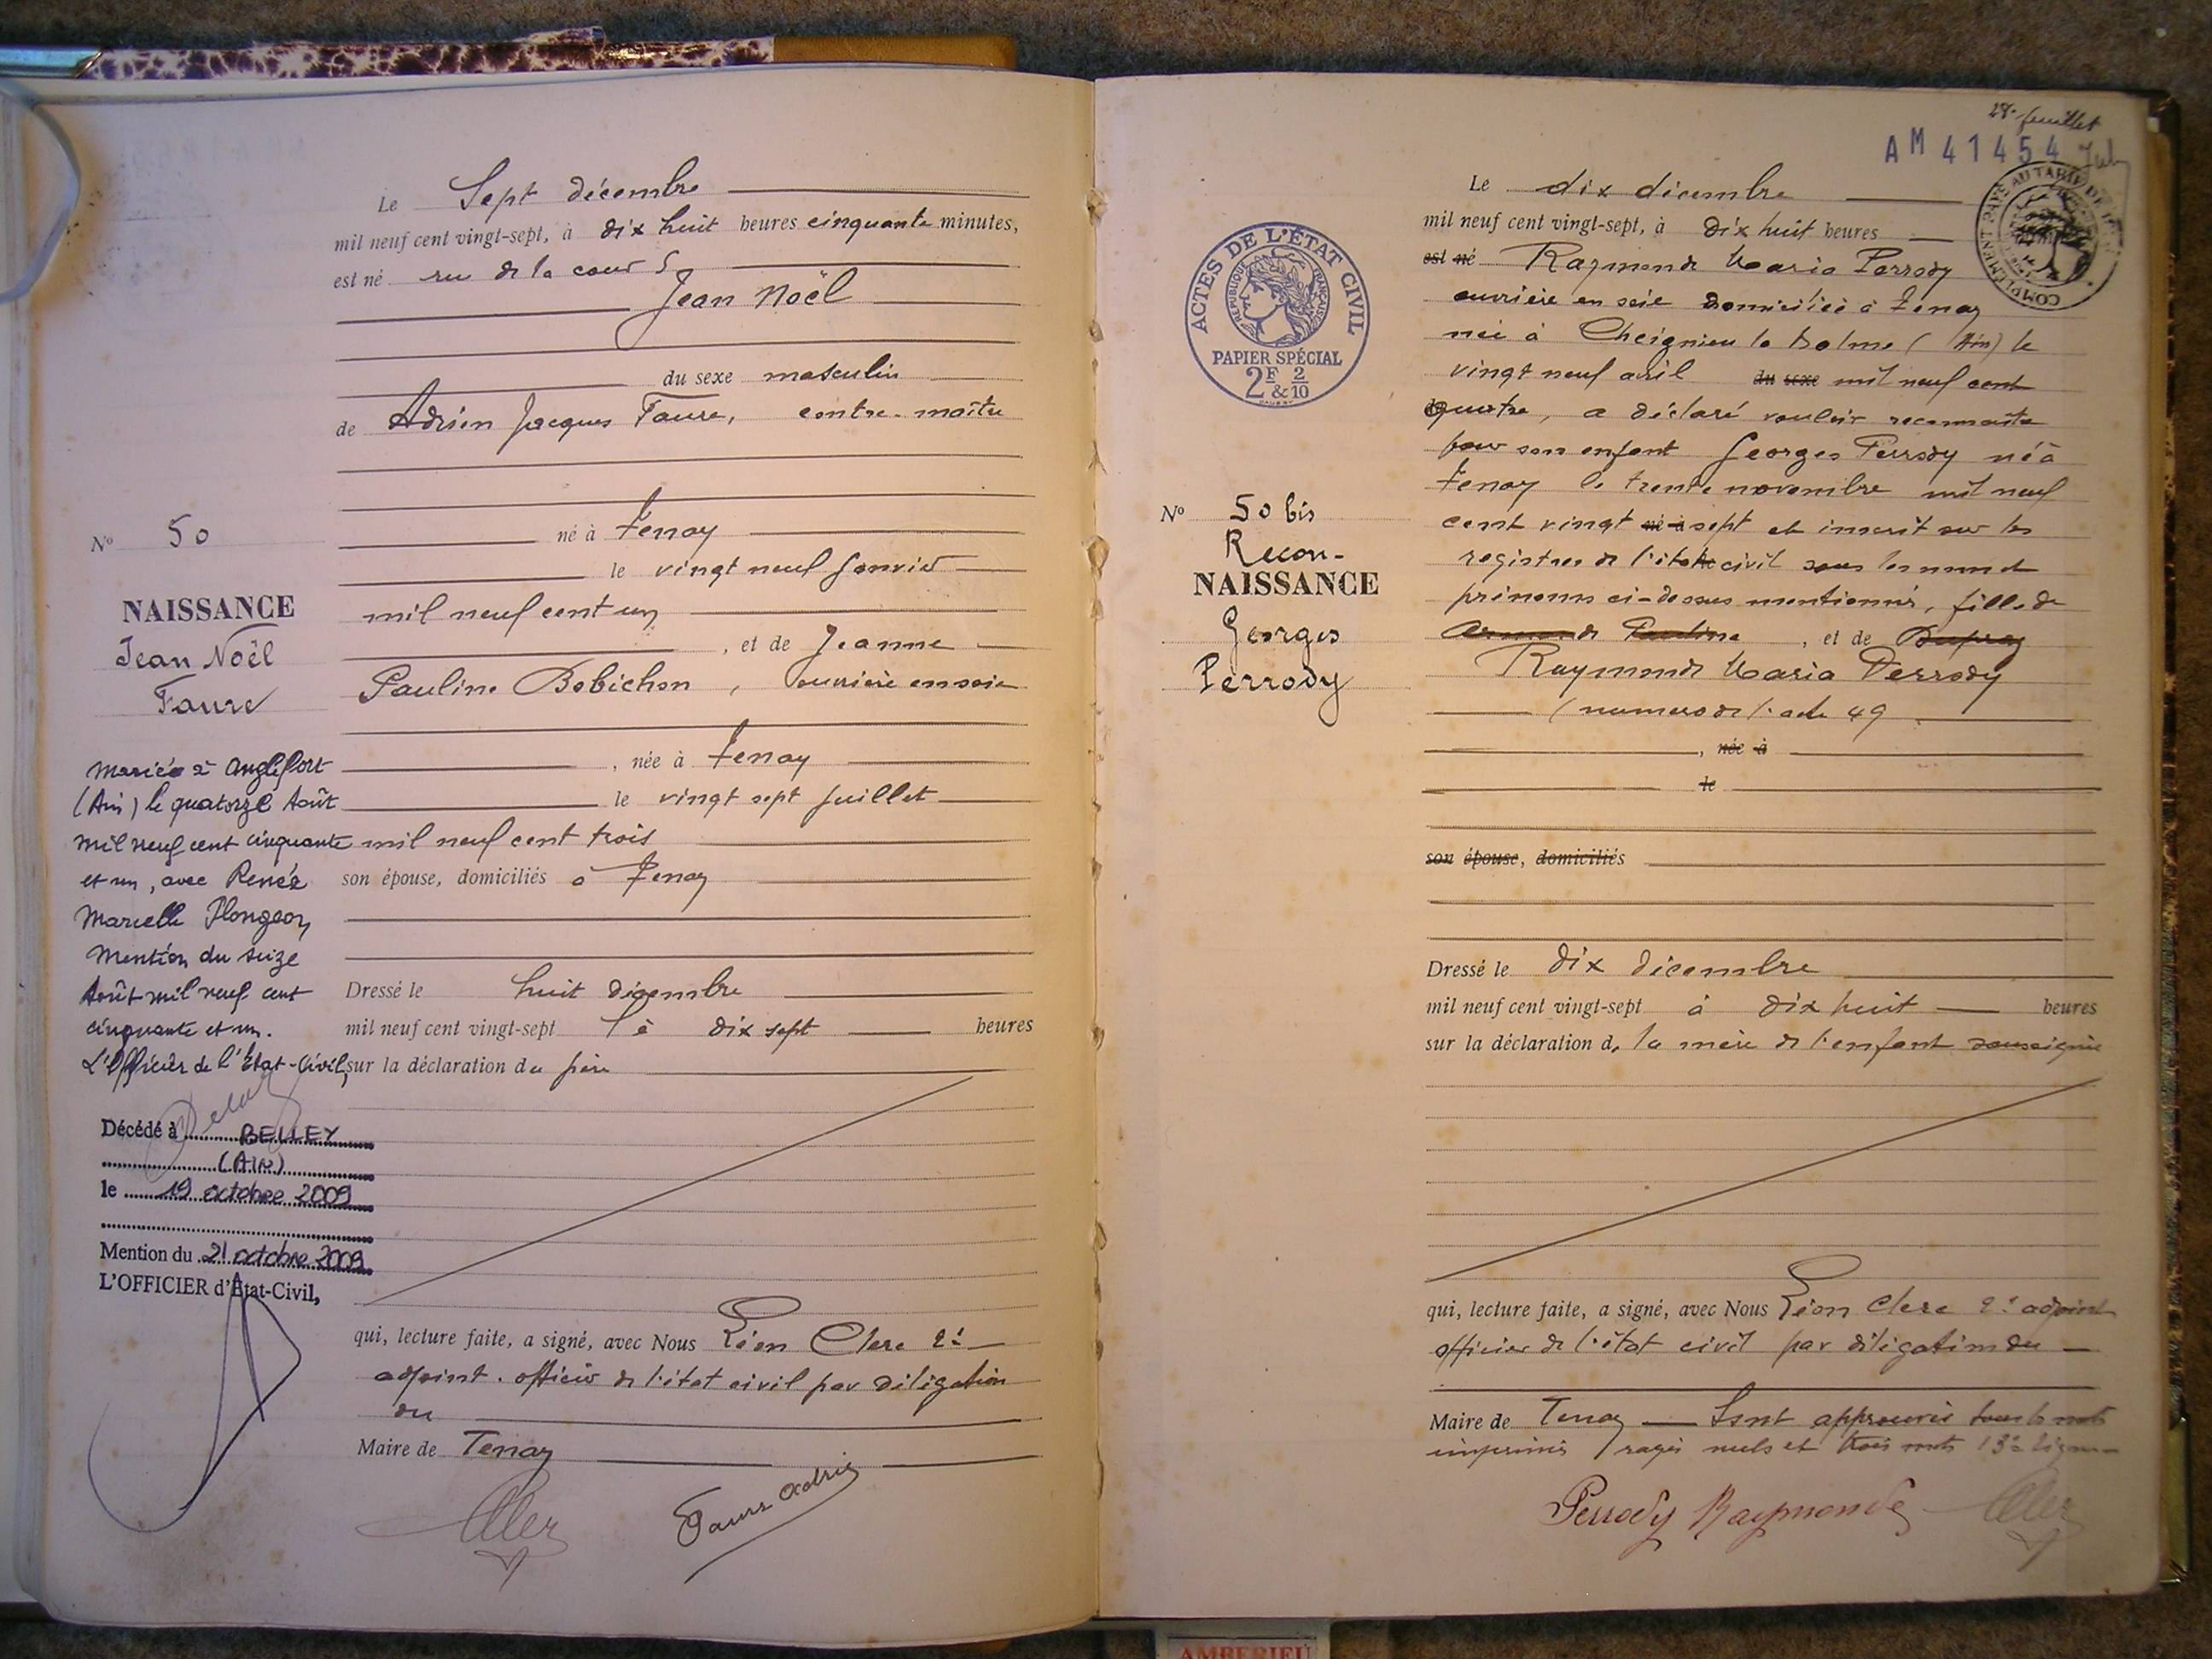 Le Sept décembre
mil neuf cent vingt-sept, à dix huit heures cinquante minutes,
est né rue de la cour
Jean Noël
du sexe masculin
de Adrien Jacques Faure, contre-maître
né à Tenay
le vingt neuf Janvier
mil neuf cent un
, et de Jeanne
Pauline Bobichon, ouvrière en soie
, née à Tenay
le vingt sept Juillet
mil neuf cent trois
son épouse, domiciliés à Tenay
Dressé le huit décembre
mil neuf cent vingt-sept à dix sept heures
sur la déclaration du père
qui, lecture faite, a signé, avec Nous Léon Clerc 2e
adjoint. officier de l'état civil par délégation
du
Maire de Tenay
Faure Adrien
No 50
NAISSANCE
Jean Noël
Faure
Marié à Anglefort
(Ain) le quatorze Août
mil neuf cent cinquante
et un, avec Renée
Marcelle Plongeon,
Mention du seize
Août mil neuf cent
cinquante et un.
L'Officier de l'État-Civil,
Décédé à BELLEY
(AIN)
le 19 octobre 2009
Mention du 21 octobre 2009
L'OFFICIER d'Etat-Civil,
28e feuillet
AM 41454
COMPLÉMENT PAYÉ AU TARIF DE
ACTES DE L'ÉTAT CIVIL
RÉPUBLIQUE FRANÇAISE
PAPIER SPÉCIAL
2F & 2/10
No 50 bis
Recon-
NAISSANCE
Georges
Perrody
Le dix décembre
mil neuf cent vingt-sept, à dix huit heures
est né Raymonde Maria Perrody
ouvrière en soie domiciliée à Tenay
née à Cheignieu la balme (Ain) le
vingt neuf avril du sexe mil neuf cent
quatre, a déclaré vouloir reconnaître
pour son enfant Georges Perrody né à
Tenay le trente novembre mil neuf
cent vingt né à sept et inscrit sur les
registres de l'état le civil sous les nom et
prénoms ci-dessus mentionnés, fils de
Pauline, et de
Raymonde Maria Perrody
(numéro de l'acte 49
, née à
le
son épouse, domiciliés
Dressé le dix décembre
mil neuf cent vingt-sept à dix huit heures
sur la déclaration de la mère de l'enfant soussignée
qui, lecture faite, a signé, avec Nous Léon Clerc 2e adjoint
officier de l'état civil par délégation du
Maire de Tenay Sont approuvés tous les mots
imprimés rayés nuls et trois mots 13e ligne
Perrody Raymonde
AMBERIEU